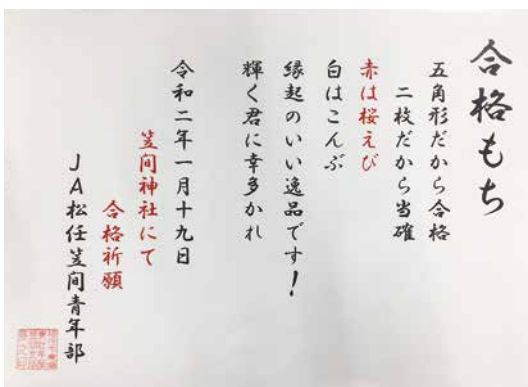 合格もち
五角形だから合格
二枚だから当確
赤は桜えび
白はこんぶ
縁起のいい逸品です!
輝く君に幸多かれ
令和二年一月十九日
笠間神社にて
合格祈願
JA松任笠間青年部